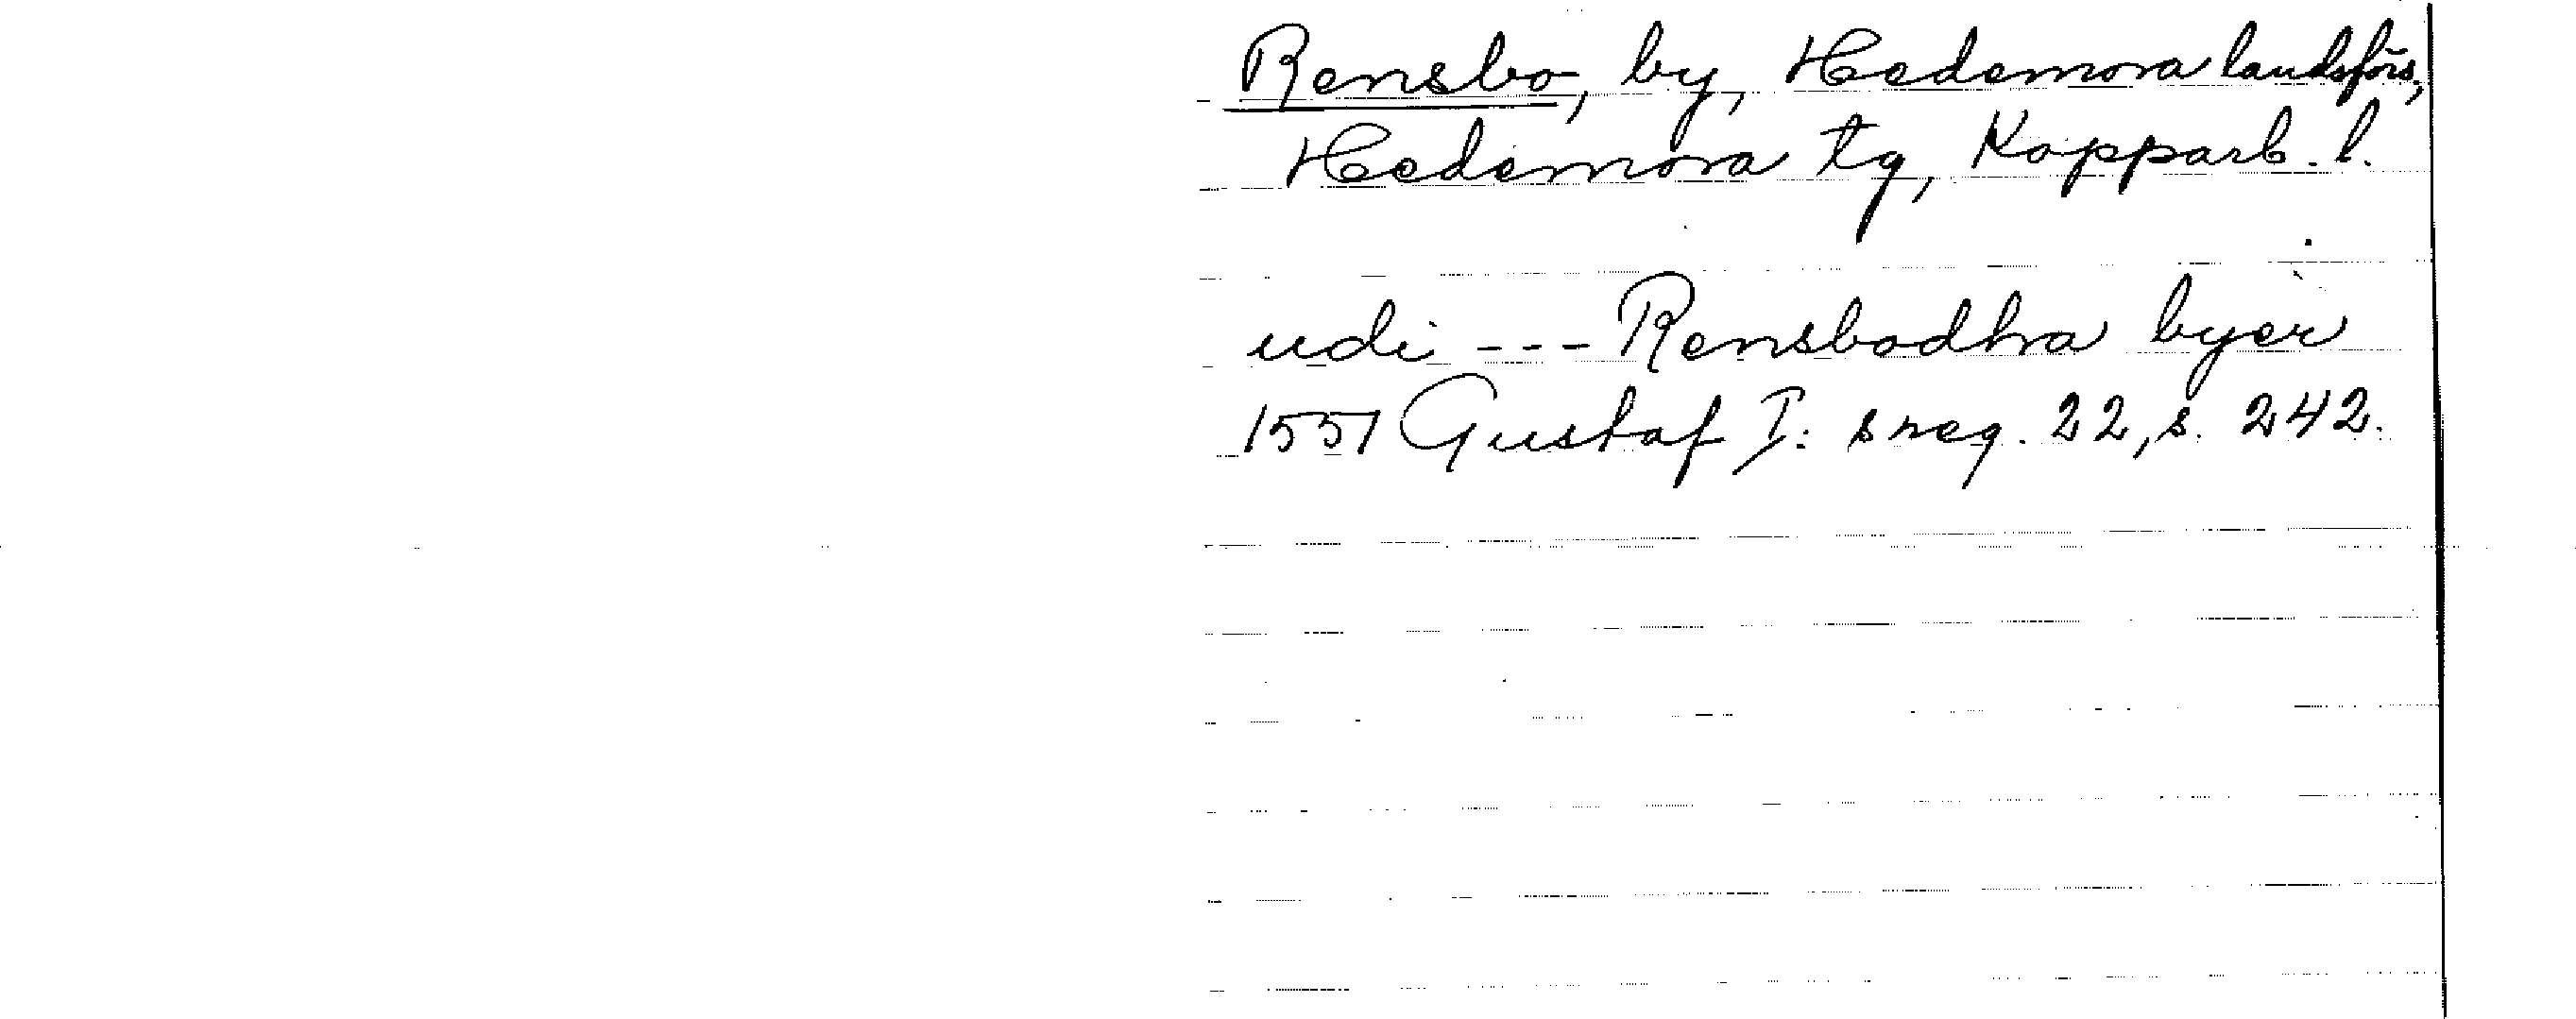 Rensbo, by, Hedemora landsförs,
Hedemora tg, Kopparb. l.
udi --- Rensbodhra byer
1551 Gustaf I:s reg. 22, s. 242.